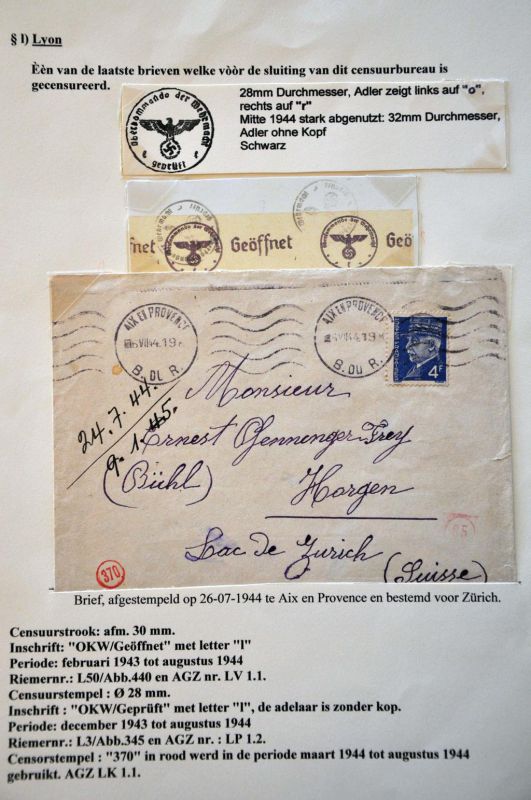 § l) Lyon
Èèn van de laatste brieven welke vòòr de sluiting van dit censuurbureau is
gecensureerd.
Oberkommando der Wehrmacht
geprüft
28mm Durchmesser, Adler zeigt links auf "o",
rechts auf "r"
Mitte 1944 stark abgenutzt: 32mm Durchmesser,
Adler ohne Kopf
Schwarz
fnet Geöffnet Geö
AIX EN PROVENCE
B. DU R.
AIX EN PROVENCE
B. DU R.
4F
Monsieur
24.7.44.
9.1.45.
Ernest
(Bühl)
Horgen
Lac de Zurich
(Suisse)
370
Brief, afgestempeld op 26-07-1944 te Aix en Provence en bestemd voor Zürich.
Censuurstrook: afm. 30 mm.
Inschrift: "OKW/Geöffnet" met letter "l"
Periode: februari 1943 tot augustus 1944
Riemernr.: L50/Abb.440 en AGZ nr. LV 1.1.
Censuurstempel : Ø 28 mm.
Inschrift : "OKW/Geprüft" met letter "l", de adelaar is zonder kop.
Periode: december 1943 tot augustus 1944
Riemernr.: L3/Abb.345 en AGZ nr. : LP 1.2.
Censorstempel : "370" in rood werd in de periode maart 1944 tot augustus 1944
gebruikt. AGZ LK 1.1.